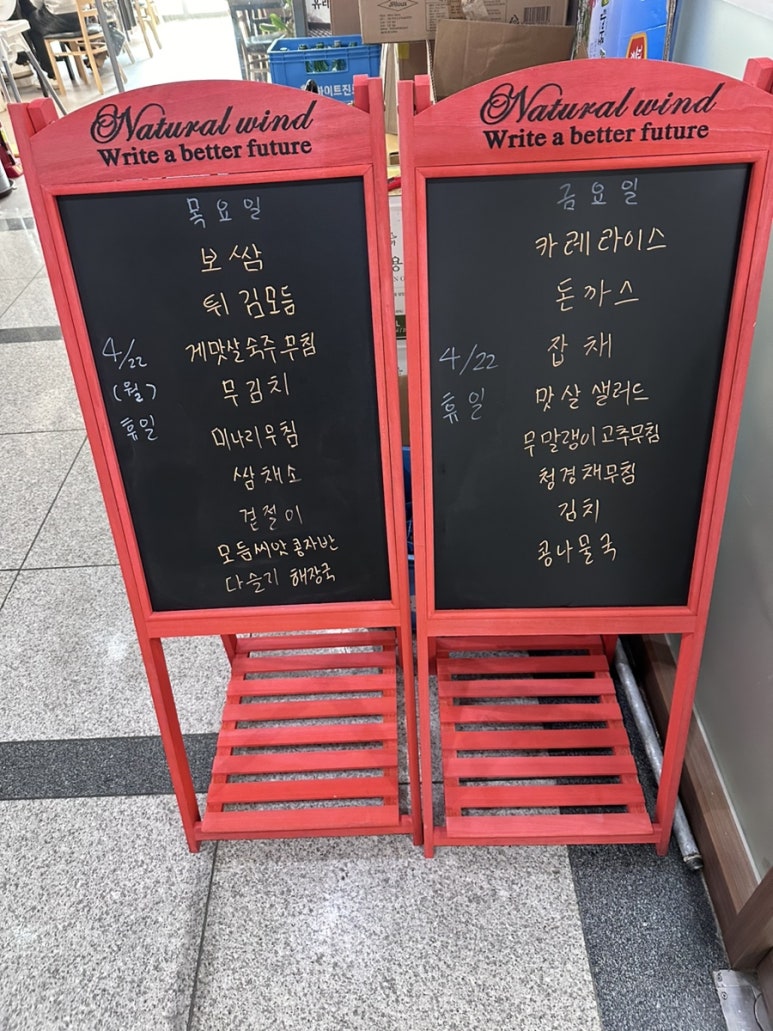 Natural wind
Write a better future
목요일
보쌈
튀김모듬
게맛살숙주무침
무김치
미나리무침
쌈채소
겉절이
모듬씨앗콩자반
다슬기 해장국
4/22
(월)
휴일
Natural wind
Write a better future
금요일
카레라이스
돈까스
잡채
맛살샐러드
무말랭이고추무침
청경채무침
김치
콩나물국
4/22
휴일